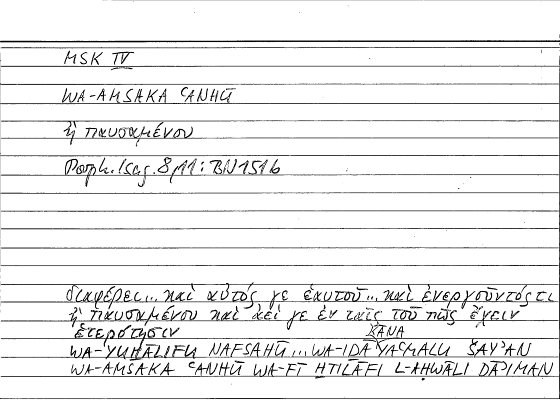 MSK IV
WA-AMSAKA ʿANHŪ
ἢ παυσαμένου
Porph. Isag. 8,11: BN 151b
διαφέρει... καὶ αὐτός γε ἑαυτοῦ... καὶ ἐνεργοῦντός τι
ἢ παυσαμένου καὶ ἀεί γε ἐν ταῖς τοῦ πῶς ἔχειν
ἑτερότησιν
KĀNA
WA-YUḪĀLIFU NAFSAHŪ ... WA-IḎĀ YAʿMALU ŠAYʾAN
WA-AMSAKA ʿANHŪ WA-FĪ ḪTILĀFI L-AḤWĀLI DĀʾIMAN